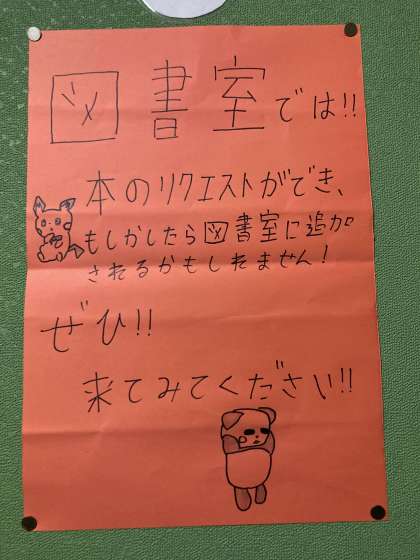 図書室では!!
本のリクエストができ、
もしかしたら図書室に追加
されるかもしれません!
ぜひ!!
来てみてください!!